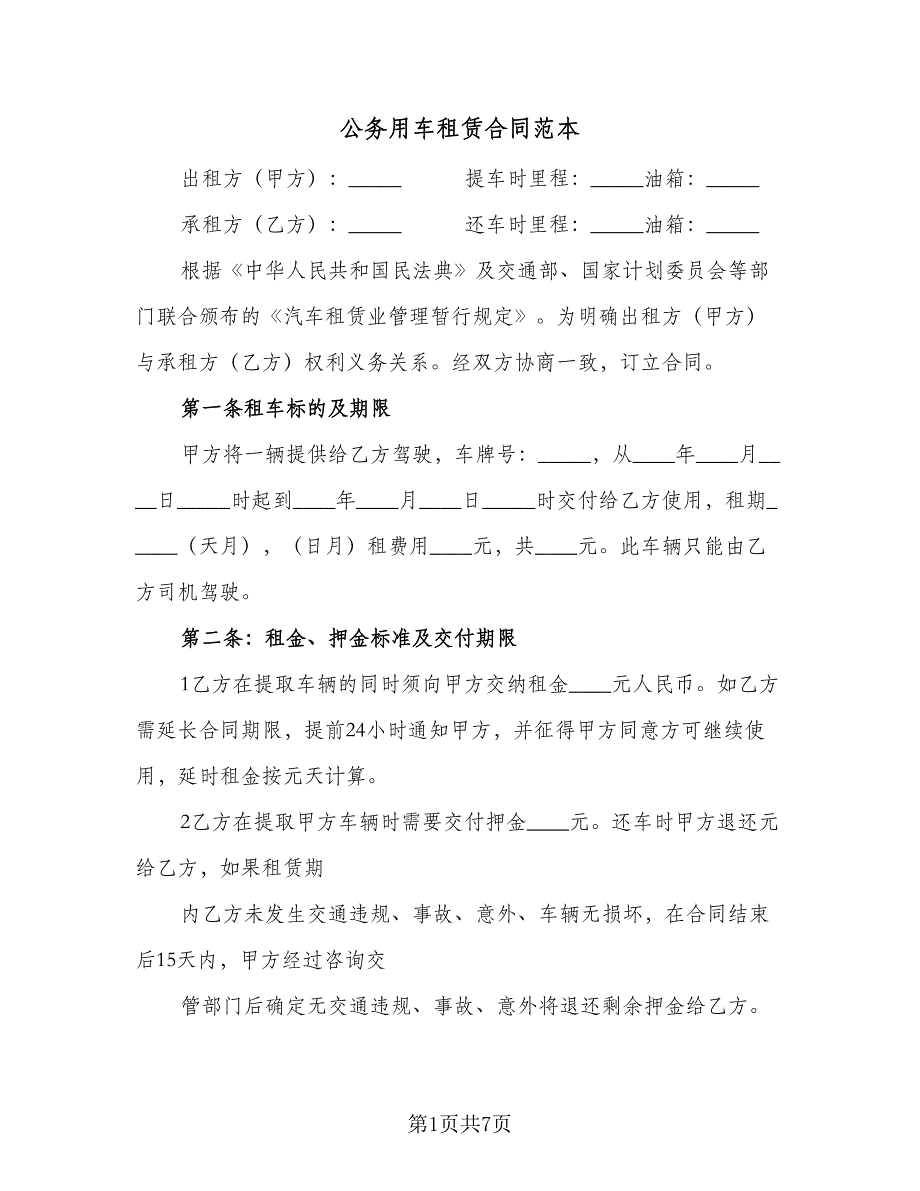 公务用车租赁合同范本
出租方（甲方）：_____ 提车时里程：_____油箱：_____
承租方（乙方）：_____ 还车时里程：_____油箱：_____
根据《中华人民共和国民法典》及交通部、国家计划委员会等部
门联合颁布的《汽车租赁业管理暂行规定》。为明确出租方（甲方）
与承租方（乙方）权利义务关系。经双方协商一致，订立合同。
第一条租车标的及期限
甲方将一辆提供给乙方驾驶，车牌号：_____，从____年____月__
__日_____时起到____年____月____日_____时交付给乙方使用，租期_
____（天月），（日月）租费用____元，共____元。此车辆只能由乙
方司机驾驶。
第二条：租金、押金标准及交付期限
1乙方在提取车辆的同时须向甲方交纳租金____元人民币。如乙方
需延长合同期限，提前24小时通知甲方，并征得甲方同意方可继续使
用，延时租金按元天计算。
2乙方在提取甲方车辆时需要交付押金____元。还车时甲方退还元
给乙方，如果租赁期
内乙方未发生交通违规、事故、意外、车辆无损坏，在合同结束
后15天内，甲方经过咨询交
管部门后确定无交通违规、事故、意外将退还剩余押金给乙方。
第1页共7页